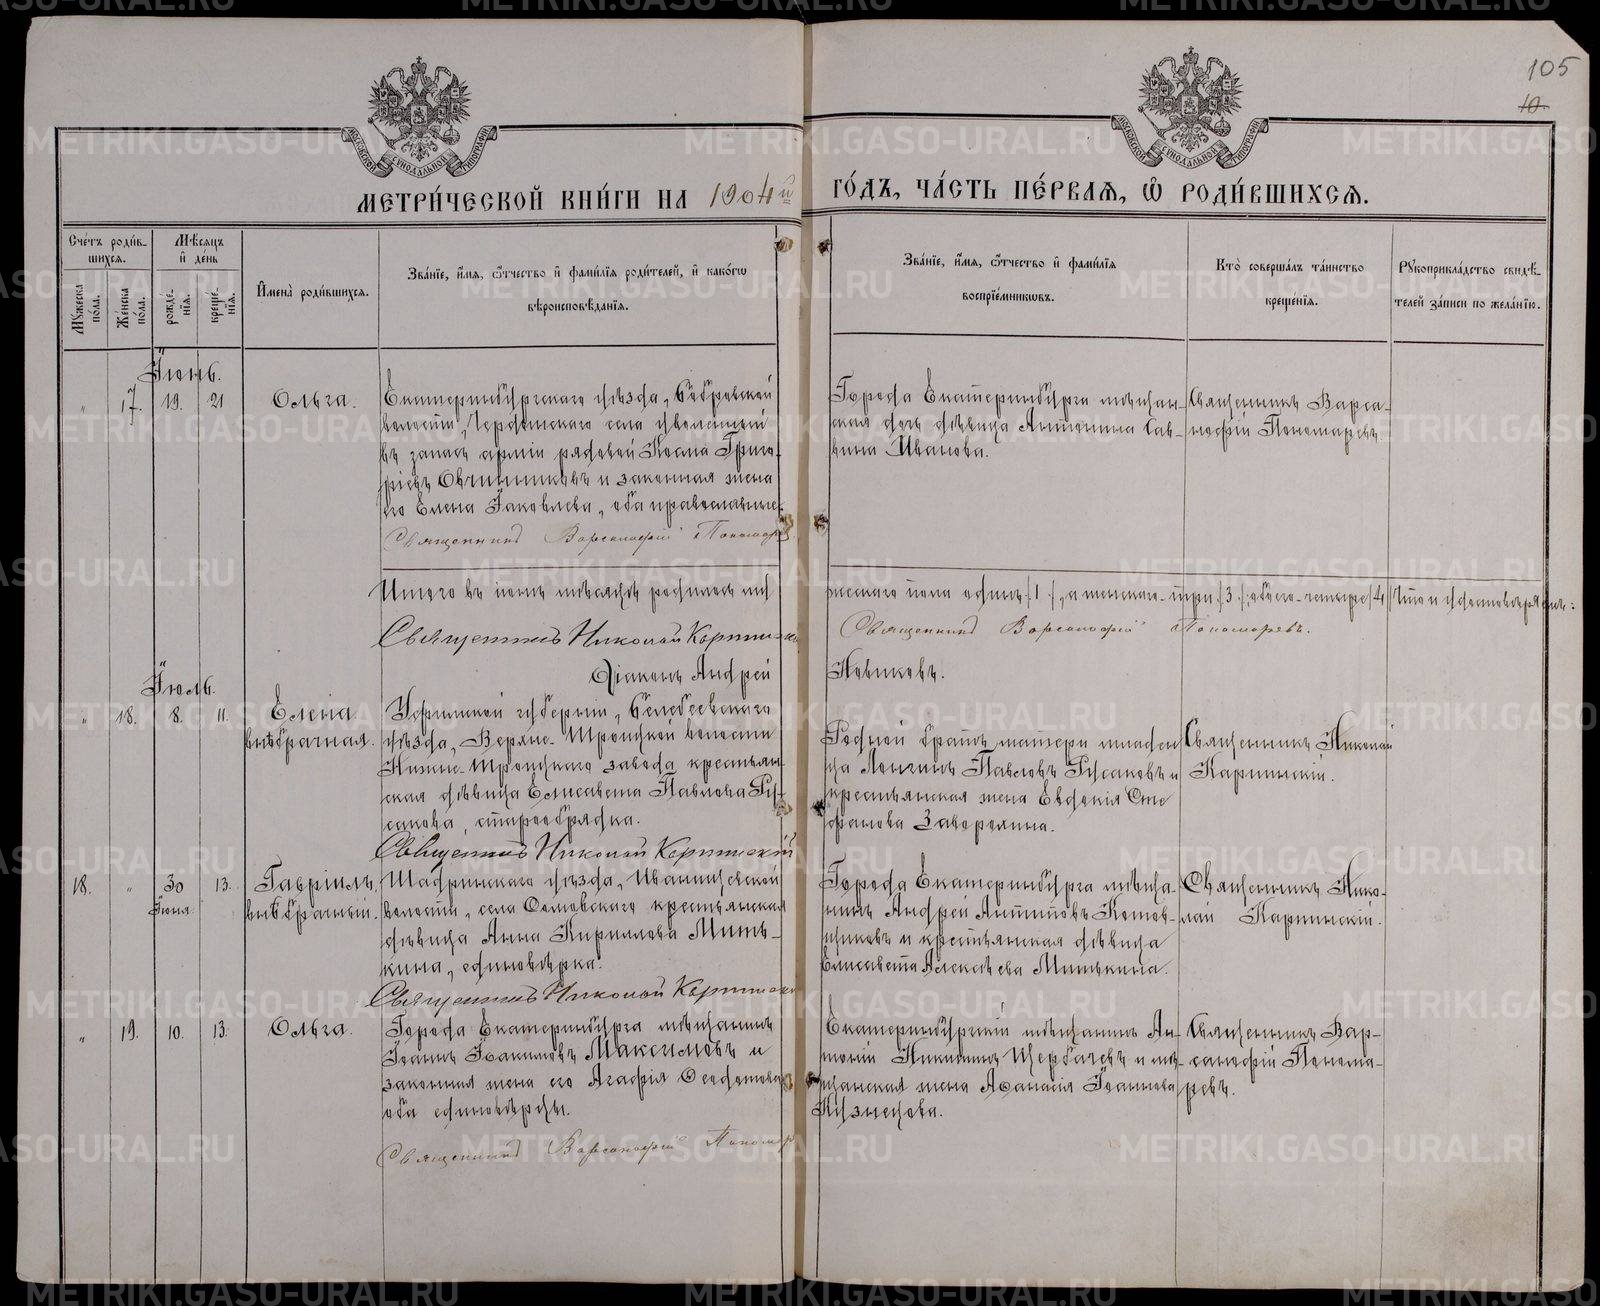 105
10.
МЕТРИ́ЧЕСКОЙ КНИ́ГИ НА 1904й ГО́ДЪ, ЧА́СТЬ ПЕ́РВАЯ, Ѿ РОДИ́ВШИХСЯ.
Сче́тъ роди́в-
шихся.
Мѣ́сяцъ
и день
Мꙋжеска
по́ла.
Же́нска
по́ла.
рожде́-
нїя.
креще́-
нїя.
Имена̀ роди́вшихся.
Зва́нїе, и́мя, ѻ́тчество и фами́лїя роди́телей, и како́гѡ
вѣроисповѣ́данїя.
Зва́нїе, и́мя, ѻ́тчество и фами́лїя
воспрїе́мникѡвъ.
Кто̀ соверша́лъ та́инство
креще́нїя.
Рꙋкоприкла́дство свидѣ́-
телей за́писи по жела́нїю.
Іюнь.
" 17. 19. 21 Ольга.
Екатеринбургскаго уѣзда, Бобровской
волости, села уволенный
въ запасъ арміи рядовой Косма Григо-
ріевъ Овчинниковъ и законная жена
его Елена Іаковлева, оба православные.
Священникъ Варсонофій Пономар
Города Екатеринбурга мѣщан-
ская дочь дѣвица Антонина Сав-
вина Иванова.
Священникъ Варса-
нофій Пономаревъ.
Итого въ іюнѣ мѣсяцѣ родилось му
жескаго пола одинъ /1/, а женскаго-три /3/, обоего-четыре /4/ Что и удостовѣряемъ:
Священникъ Николай Карпинск
Священникъ Варсонофій Пономаревъ.
Діаконъ Андрей Новиковъ.
Іюль.
" 18. 8. 11. Елена
внѣбрачная.
Уфимской губерніи, Белебеевскаго
уѣзда, Верхне-Троицкой волости
Нижне-Троицкаго завода крестьян-
ская дѣвица Елисавета Павлова Ру-
сакова, старообрядка.
Священникъ Николай Карпинскій
Родной братъ матери младен
ца Лонгинъ Павловъ Русаковъ и
крестьянская жена Евдокія Сте
фанова Заворохина.
Священникъ Николай
Карпинскій.
18. " 30
Іюня
13. Гавріилъ,
внѣбрачный.
Шадринскаго уѣзда, Иванищевской
волости, села Осиновскаго крестьянская
дѣвица Анна Кириллова Мить-
кина, единовѣрка.
Священникъ Николай Карпинск
Города Екатеринбурга мѣща-
нинъ Андрей Антиповъ Котов-
щиковъ и крестьянская дѣвица
Елисавета Алексѣева Митькина.
Священникъ Нико-
лай Карпинскій.
" 19. 10. 13. Ольга.
Города Екатеринбурга мѣщанинъ
Іоаннъ Іоакимовъ Максимовъ и
законная жена его Агафія Ѳеодотова
оба единовѣрцы.
Священникъ Варсонофій Пономар
Екатеринбургскій мѣщанинъ Ан-
тоній Никитинъ Щербачевъ и мѣ-
щанская жена Афанасія Іоаннова
Кузнецова.
Священникъ Вар-
санофій Понома-
ревъ.